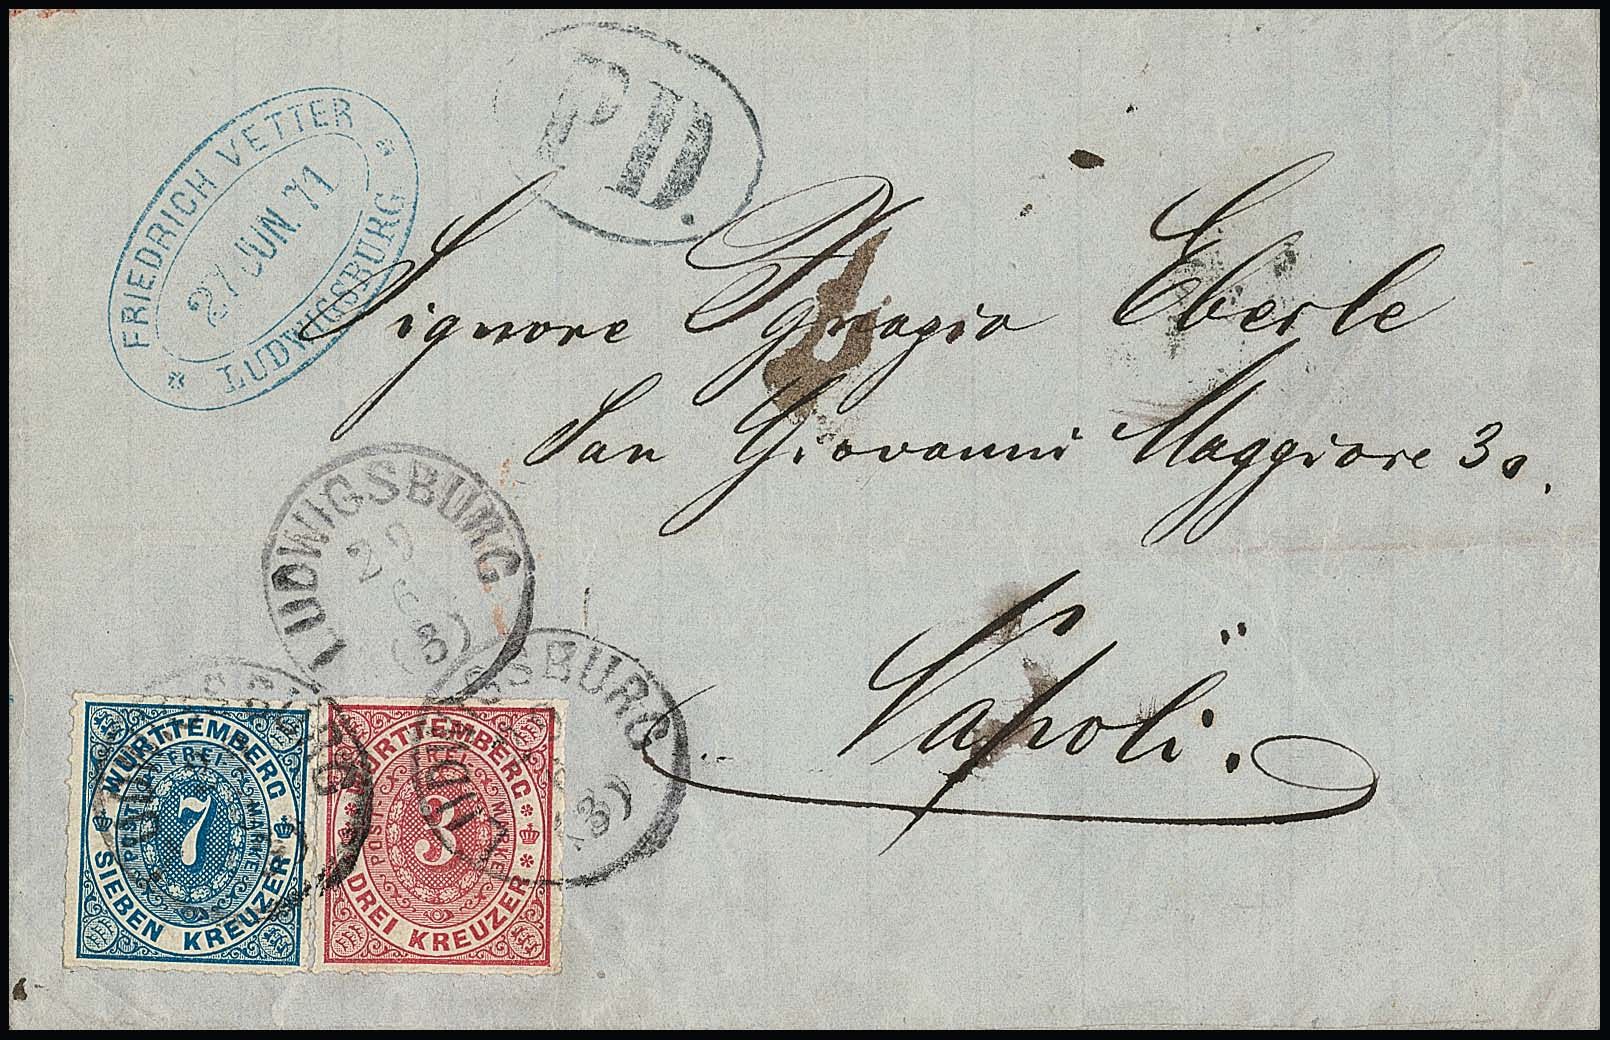 FRIEDRICH VETTER
27 JUN. 71
LUDWIGSBURG
P.D.
Signore Ignazio Eberle
San Giovanni Maggiore 30.
Napoli.
LUDWIGSBURG
(3)
LUDWIGSBURG
(3)
WÜRTTEMBERG
POST- FREI MARKE
7
SIEBEN KREUZER
WÜRTTEMBERG
POST- MARKE
3
DREI KREUZER